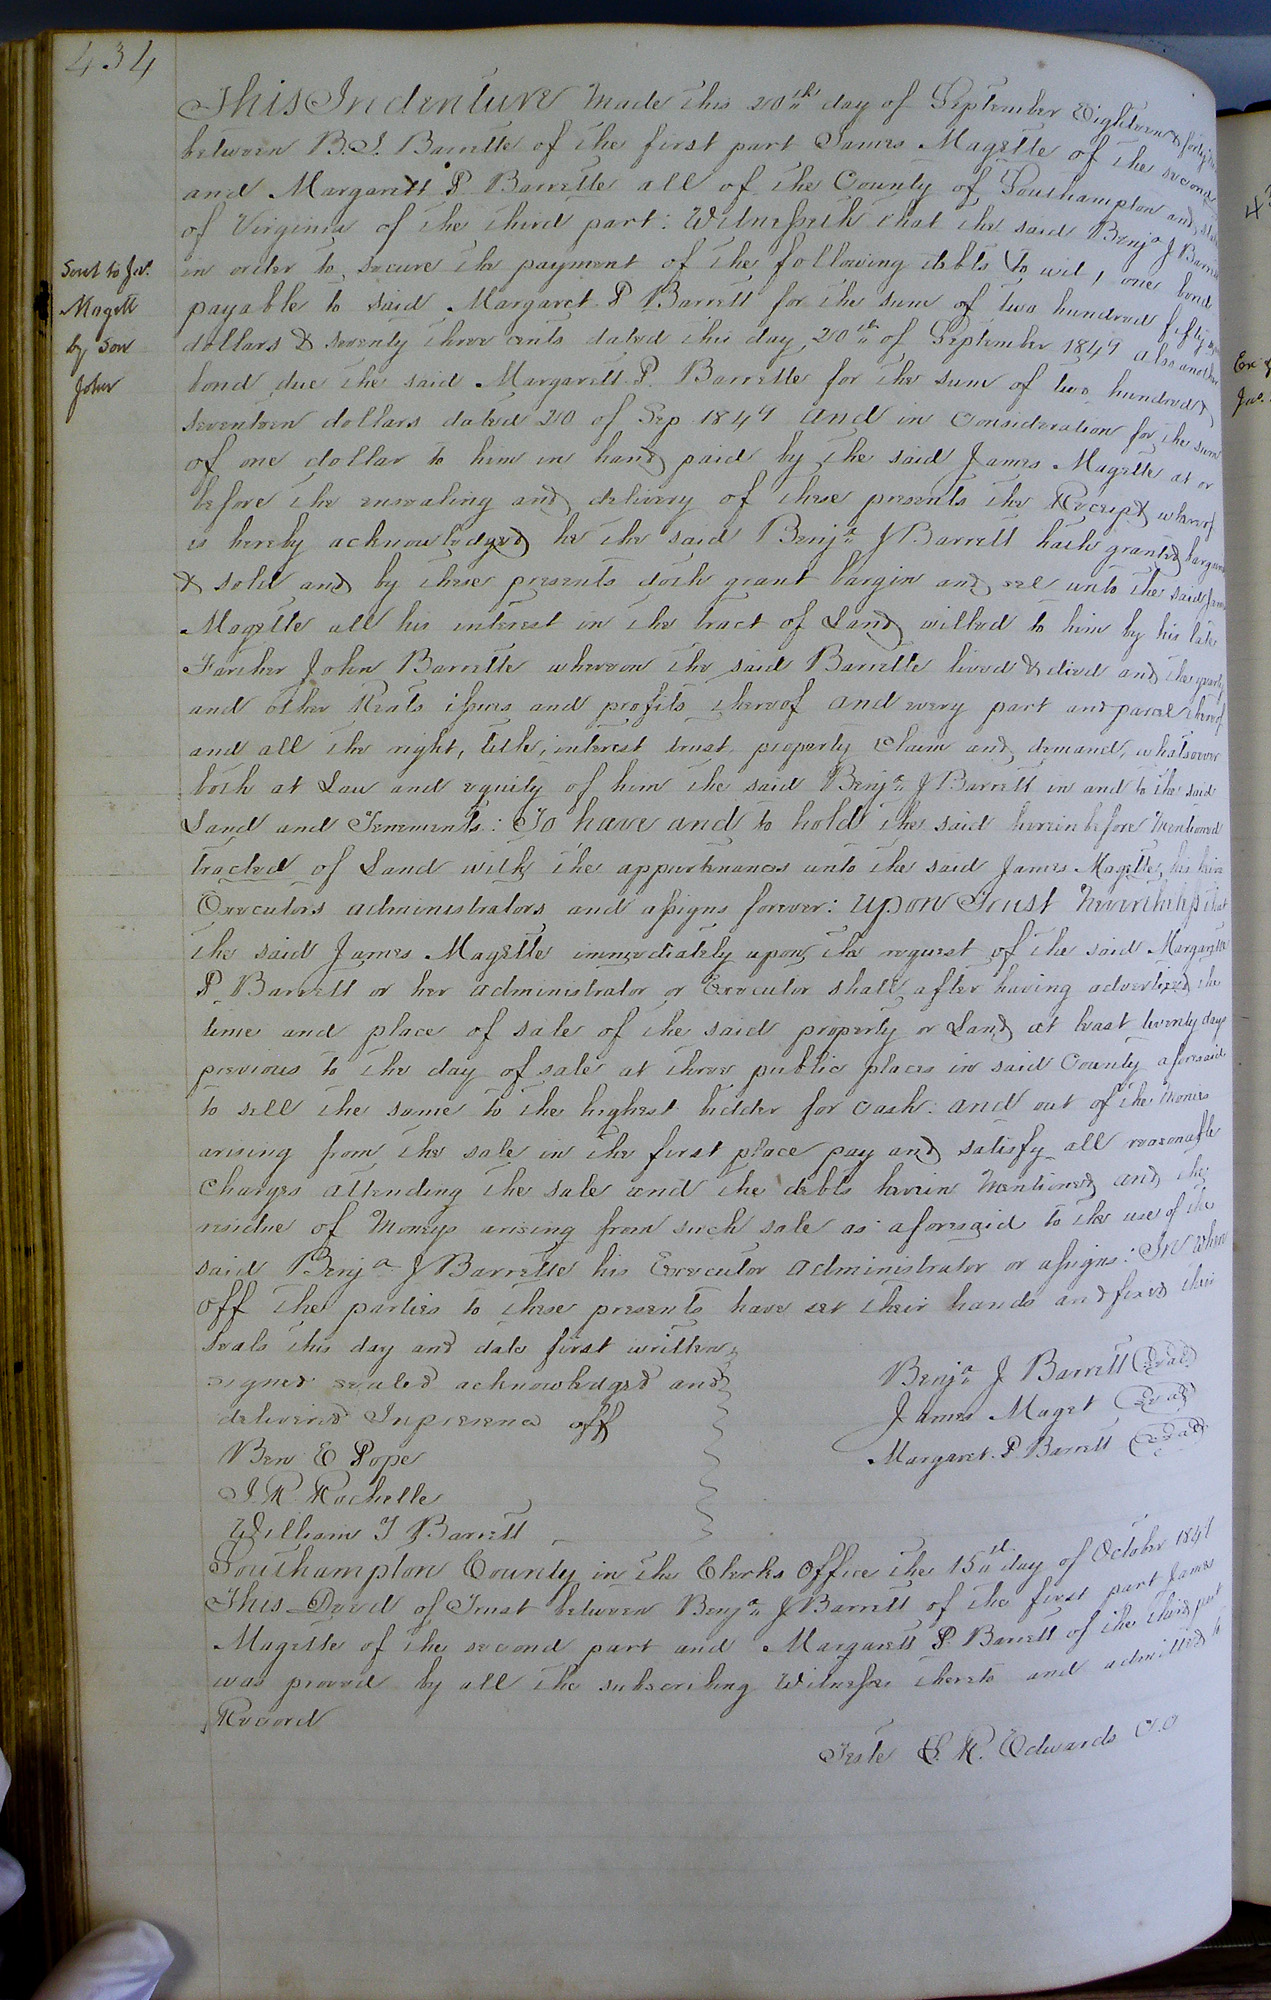 434
This Indenture Made this 20th day of September Eighteen & forty
between B. J. Barrette of the first part James Magette of the second
and Margarett P. Barrette all of the County of Southampton and State
of Virginia of the third part: Witnesseth that the said Benja J Barrett
in order to secure the payment of the following debts to wit, one bond
payable to said Margaret P Barrett for the sum of two hundred fifty
dollars & seventy three cents dated this day 20th of September 1849 also another
bond due the said Margarett P. Barrette for the sum of two hundred &
seventeen dollars dated 20 of Sep 1849 and in consideration for the sum
of one dollar to him in hand paid by the said James Magette at or
before the ensealing and delivery of these presents the Receipt whereof
is hereby acknowledged he the said Benja J Barrett hath granted bargained
& sold and by these presents doth grant bargin and sel unto the said James
Magette all his interest in the tract of Land willed to him by his late
Farther John Barrette whereon the said Barrette lived & died and the
and other Rents issues and profits thereof and every part and parcel thereof
and all the right, title, interest trust, property claim and demand, whatsoever
both at Law and equity of him the said Benja J Barrett in and to the said
Land and Tenements: To have and to hold the said herein before Mentioned
tracted of Land with the appurtenances unto the said James Magette, his heirs
Executors administrators and assigns forever: upon Trust Nevertheless that
the said James Magette immediately upon the request of the said Margarette
P. Barrett or her administrator or Executor shall after having advertized the
time and place of sale of the said property or Land at least twenty days
previous to the day of sale at three public places in said County aforesaid
to sell the same to the highest bidder for cash: and out of the Monies
arising from the sale in the first place pay and satisfy all reasonable
Charges attending the sale and the debts herein Mentioned and the
residue of Moneys arising from such sale as aforesaid to the use of the
said Benja J Barrette his Executor administrator or assigns: In when
off the parties to these presents have set their hands and fixed their
seals this day and date first written
signed sealed acknowledged and
delivered Inpresence off
Ben E Pope
J. R. Rochelle
William T Barrett
Benja J Barrett (Seal)
James Maget (Seal)
Margaret P. Barrett (Seal)
Southampton County in the Clerks Office the 15th day of October 1849
This Deed of Trust between Benja J Barrett of the first part James
Magette of the second part and Margarett P. Barrett of the third part
was proved by all the subscribing Witnesses thereto and admitted to
Record
Teste L. R. Edwards C.C
Sent to Jas.
Magett
by son
John
Jas.